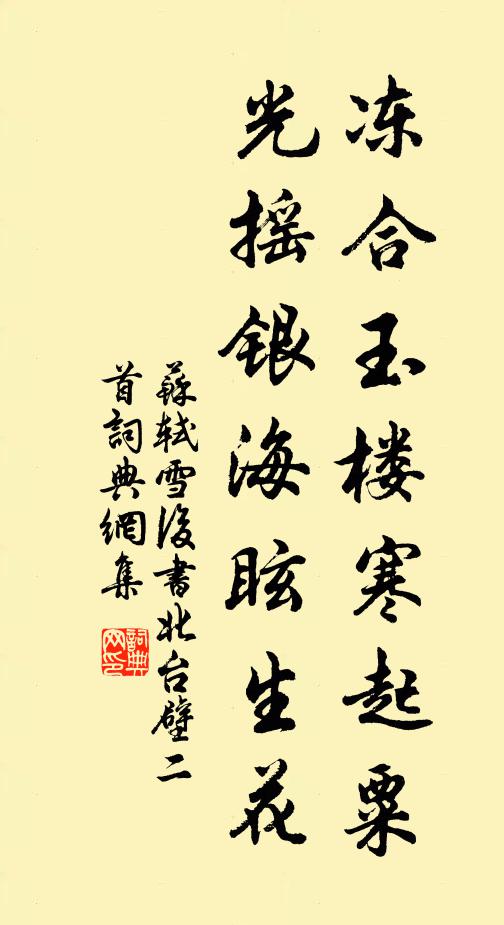 冻合玉楼寒起粟
光摇银海眩生花
蘇軾雪後書北台壁二
首詞典網集
詞典
网印